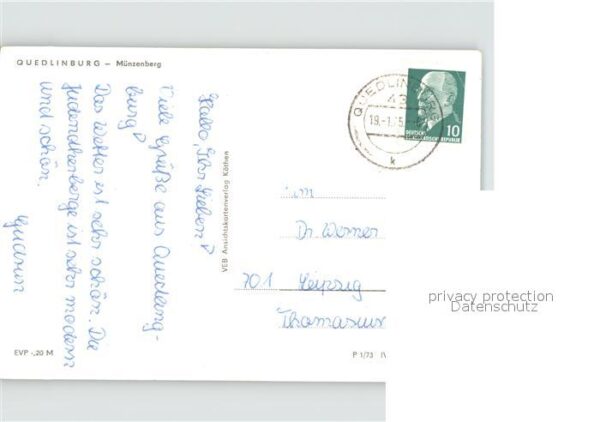 QUEDLINBURG – Münzenberg
Hallo, Ihr Lieben!
Viele Grüße aus Quedleng-
burg!
Das Wetter ist sehr schön. Die
Judendherberge ist sehr modern
und schön.
Gudrun
EVP -,20 M
VEB Ansichtskartenverlag Köthen
P 1/73 IV
QUEDLINBURG
43
19.-1.75.
k
DEUTSCHE
DEMOKRATISCHE REPUBLIK
10
Dr. Werner
701 Leipzig
privacy protection
Datenschutz